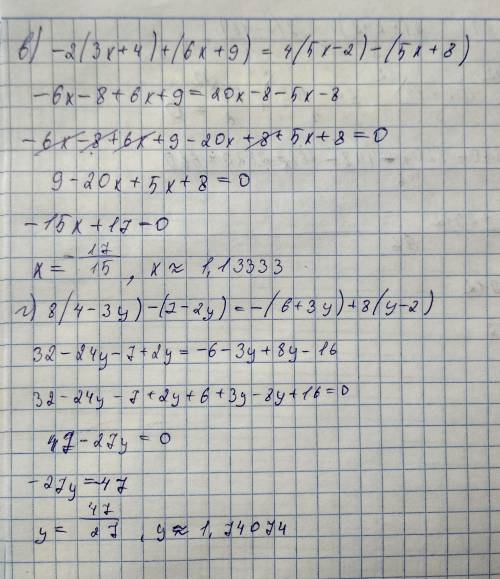 в) -2(3x+4)+(6x+9) = 4(5x-2)-(5x+8)
-6x-8+6x+9=20x-8-5x-8
-6x-8+6x+9-20x+8+5x+8=0
9-20x+5x+8=0
-15x+17=0
x= 17/15, x≈1,13333
г) 8(4-3y)-(7-2y)=-(6+3y)+8(y-2)
32-24y-7+2y=-6-3y+8y-16
32-24y-7+2y+6+3y-8y+16=0
47-27y=0
-27y=-47
y= 47/27, y≈1,74074